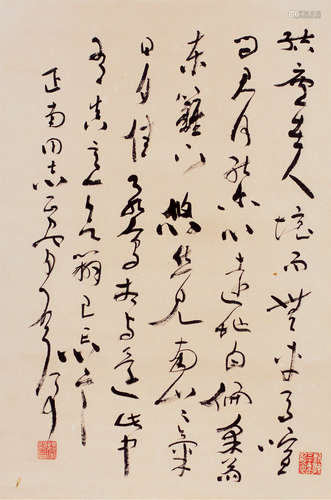 結廬在人境而無車馬喧
問君何能尔心遠地自偏采菊
東籬下悠然見南山々氣
日夕佳飛鳥相与還此中
有真意欲辯已忘言
正南同志正